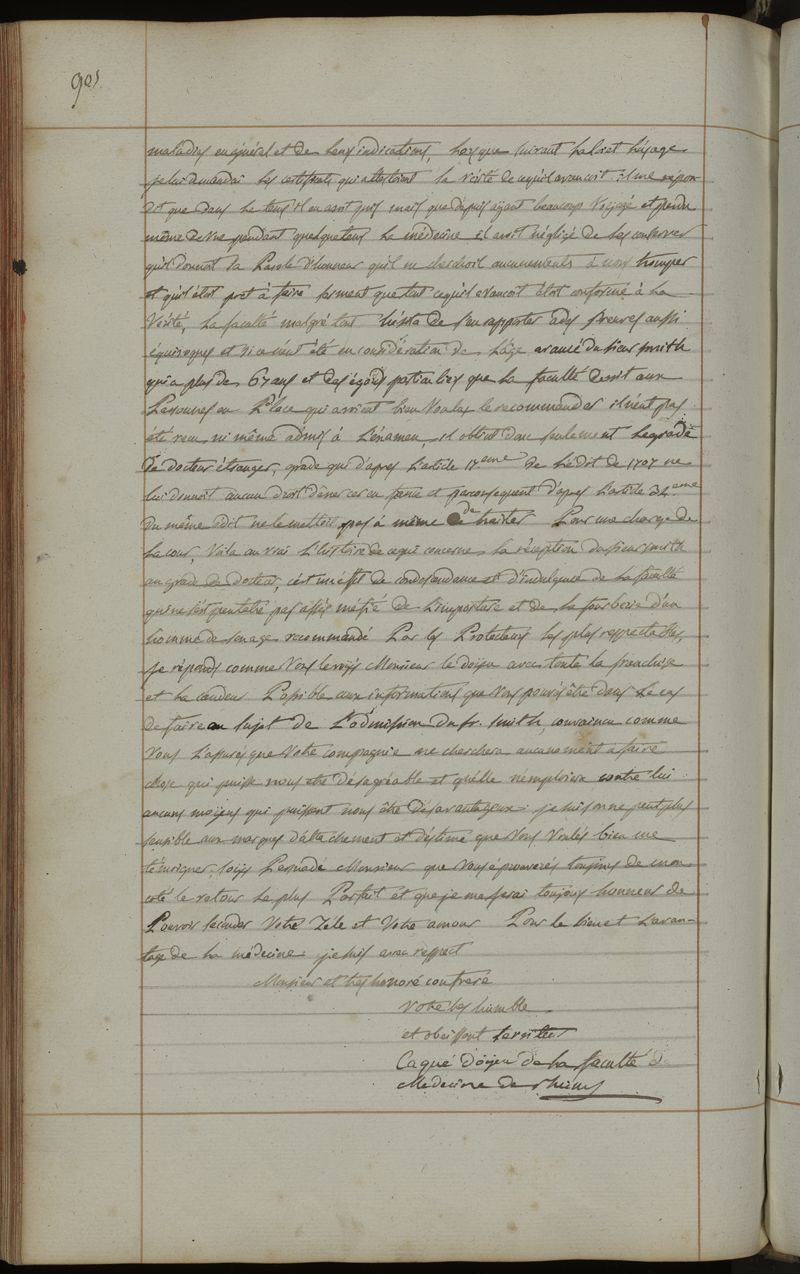 90[5]
maladies en général et de leurs indications, lorsque suivant la loi et l'usage
je lui demandai les certificats qui attestoient la vérité de ce qu'il avancoit il me repon
dit que dans le tems il en avoit pris mais que depuis ayant beaucoup voyagé et perdu
même de vue pendant quelque tems la médecine il avoit négligé de les conserver
qu'il donnoit sa Parole d'honneur qu'il ne cherchoit aucunements à nous tromper
et qu'il étoit pret à faire serment que tout ce qu'il avancoit étoit conforme à la
Vérité, la faculté malgré tout hésita de s'en rapporter à des preuves aussi
équivoques et si ce n'eut été en considération de l'âge avancé du sieur smith
qui a plus de 67 ans et des égards particuliers que la faculté devoit aux
Personnes en Place qui avoient bien voulu le recommander il n'eut pas
été reçu ni même admis à L'éxamen, il obtint donc seulement le grade
de docteur étranger, grade qui d'apres L'article 17eme de L'édit de 1707 ne
lui donnoit aucun droit d'éxercer en france et par consequent d'apres L'article 32.eme
du même édit ne le mettoit pas à même de traiter Pour une charge de
la cour, Voila au vrai L'histoire de ce qui concerne la réception du sieur smith
au grade de docteur, c'est un éffet de condescendance et d'indulgence de la faculté
qui ne s'est peut etre pas assés méfié de L'imposture et de la fourberie d'un
homme de son age recommandé Par les Protecteurs les plus respectables,
je réponds comme Vous le voyés Monsieur le doyen avec toute la franchise
et la candeur Possible aux informations que Vous pouviés être dans le cas
de faire au sujet de L'admission du sr. smith, convaincu comme
Vous L'assurés que Votre compagnie ne cherchera aucunement a faire
chose qui puisse nous etre désagréable et qu'elle n'emploiera contre lui
aucuns moyens qui puissent nous être désavantageux. je suis on ne peut plus
sensible aux marques d'attachement et d'éstime que Vous Voulés bien me
témoigner, soyés Persuadé Monsieur que Vous éprouverés toujours de mon
coté le retour le plus Parfait et que je me ferai toujours honneur de
Pouvoir seconder Votre Zèle et Votre amour Pour le bien et L'avan-
tage de la médecine je suis avec respect
Monsieur et tres honoré confrere
Votre tres humble
et obeissant serviteur
Caqué Doyen de la faculté de
Medecine de Rheims